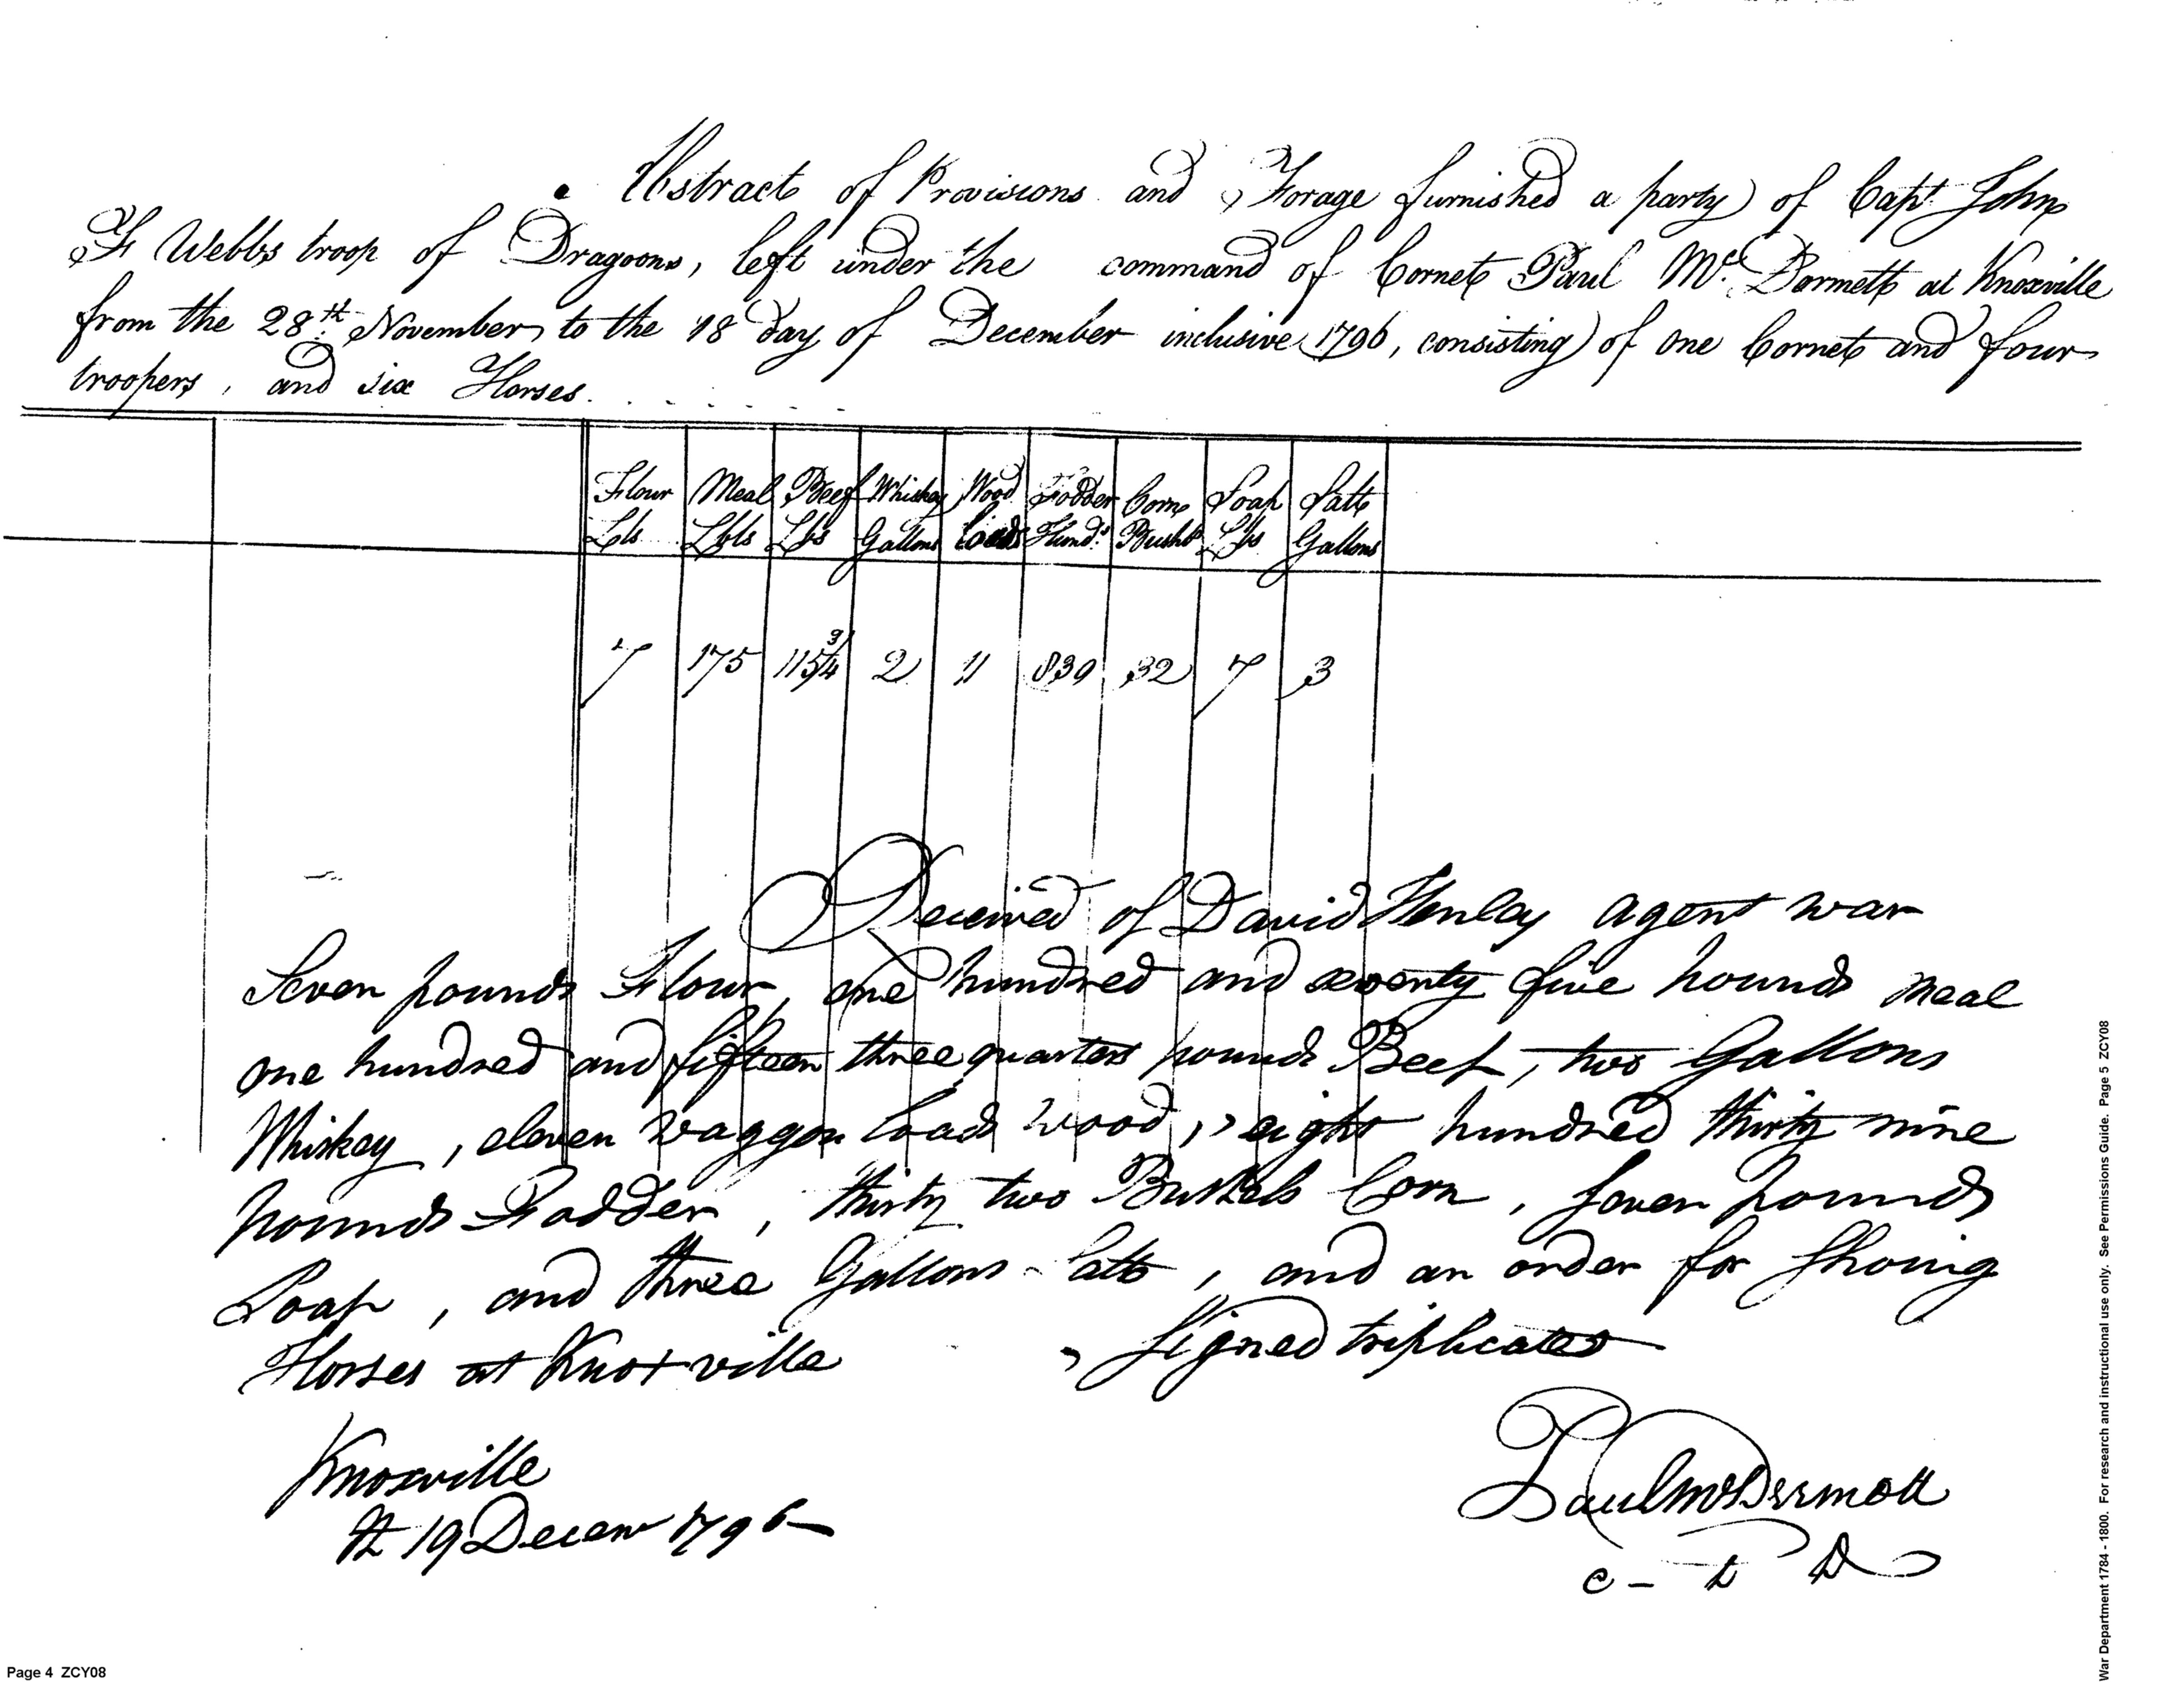 Abstract of Provisions and Forage furnished a party of Capt John
F Webbs troop of Dragoons, left under the command of Cornet Paul Mc. Dormett at Knoxville
from the 28th November, to the 18 day of December inclusive 1796, consisting of one Cornet and four
troopers, and six Horses. . . . . . .
Flour Meal Beef Whiskey Wood Fodder Corn Soap Salt
Lbs Lbls Lbs Gallons Loads Hund.s Bushls Lbs Gallons
7 175 115 3/4 2 11 839 32 7 3
Received of David Henley agent war
Seven pounds Flour, one hundred and seventy five pounds meal
one hundred and fifteen three quarters pounds Beef, two Gallons
Whiskey, eleven waggon loads wood, eight hundred thirty nine
pounds Fodder, thirty two Bushels Corn, seven pounds
Soap, and three Gallons Salt, and an order for shoing
Horses at Knoxville Signed triplicates
Knoxville
19 Decem 1796
Paul McDermott
C - L D
Page 4 ZCY08
War Department 1784 - 1800. For research and instructional use only. See Permissions Guide. Page 5 ZCY08